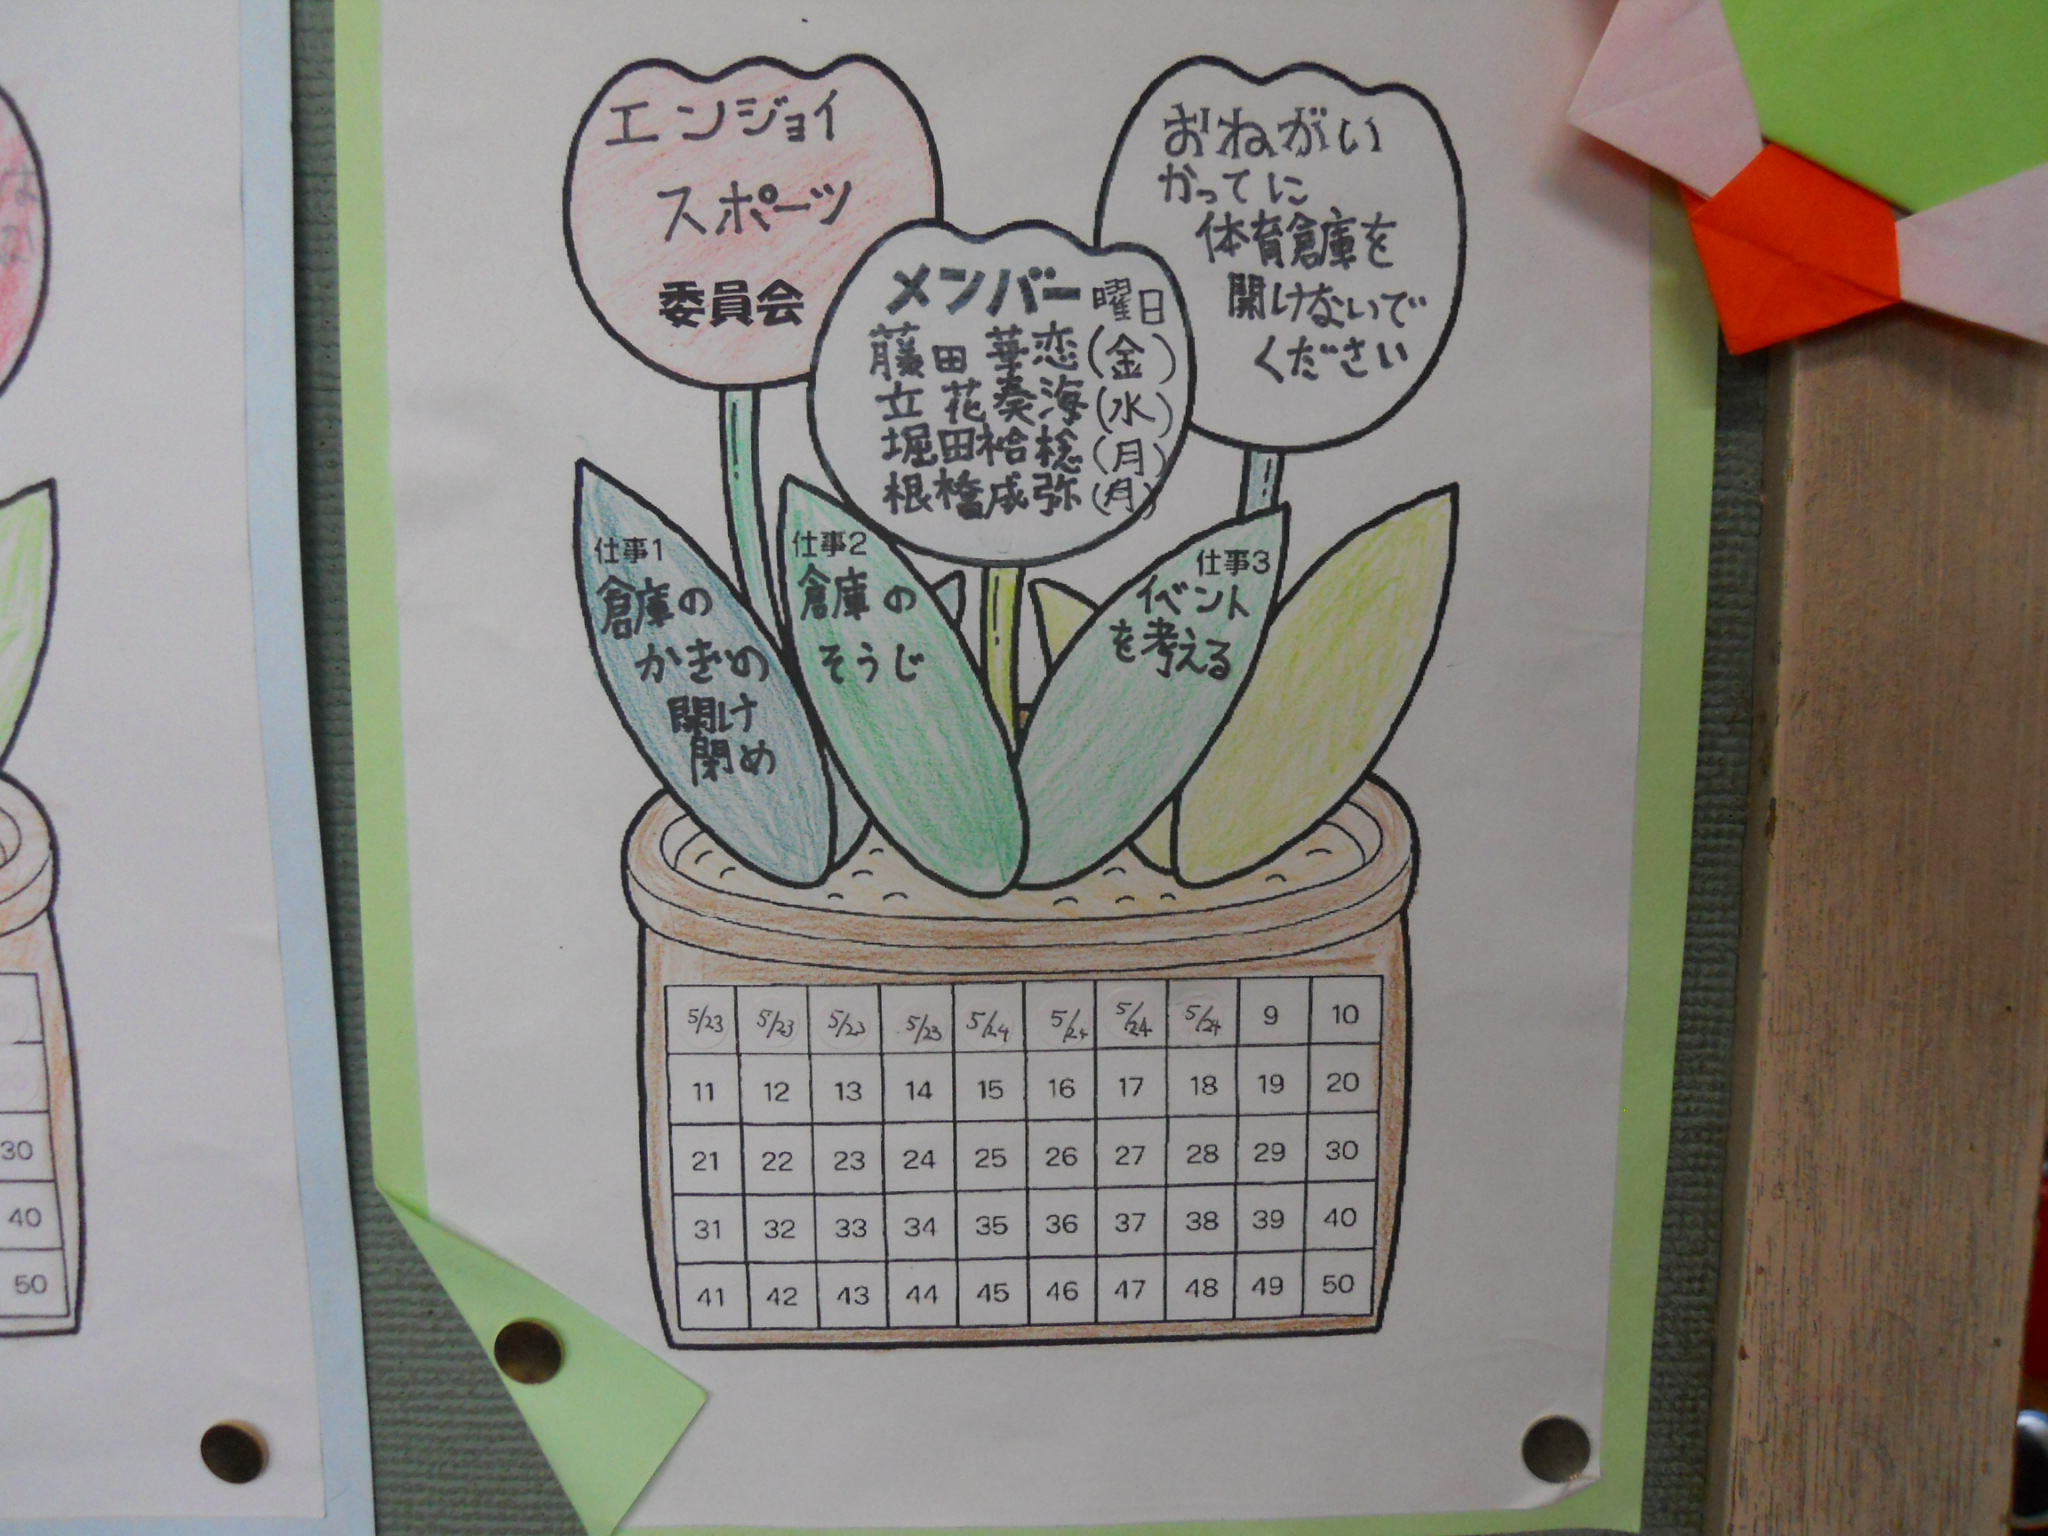 エンジョイ
スポーツ
委員会
メンバー 曜日
藤田華恋(金)
立花奏海(水)
堀田裕稔(月)
根橋成弥(月)
おねがい
かってに
体育倉庫を
開けないで
ください
仕事1
倉庫の
かぎの
開け
閉め
仕事2
倉庫の
そうじ
仕事3
イベント
を考える
5/23 5/23 5/23 5/23 5/24 5/24 5/24 5/24 9 10
11 12 13 14 15 16 17 18 19 20
21 22 23 24 25 26 27 28 29 30
31 32 33 34 35 36 37 38 39 40
41 42 43 44 45 46 47 48 49 50
30
40
50